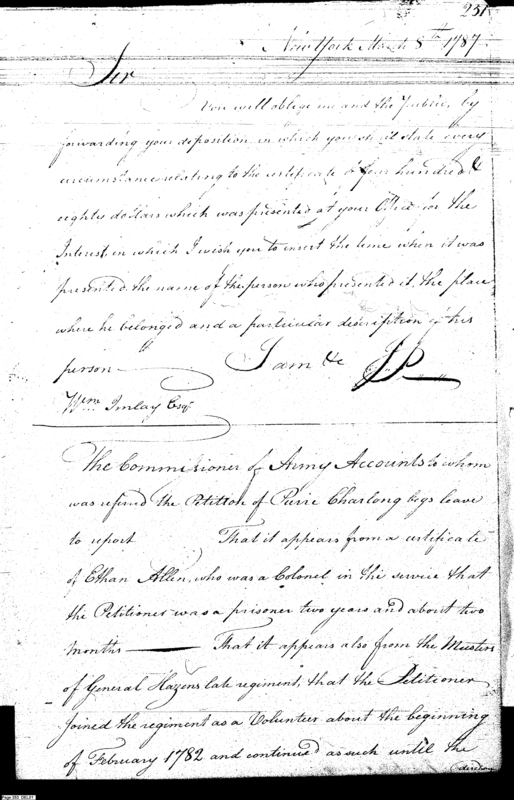 231
New York March 8th 1787
Sir
You will oblige me and the Public, by
forwarding your deposition in which you will state every
circumstance relating to the certificate of four hundred &
eighty dollars which was presented at your Office for the
Interest, in which I wish you to insert the time when it was
presented, the name of the person who presented it, the place
where he belonged and a particular discription of this
person
I am &c JP
Wm Imlay Esqr
The Commissioner of Army Accounts to whom
was refired the Petition of Pierre Charlong begs leave
to report That it appears from a certificate
of Ethan Allen, who was a Colonel in the service that
the Petitioner was a prisoner two years and about two
months — That it appears also from the Musters
of General Hazens late regiment, that the Petitioner
joined the regiment as a Volunteer about the beginning
of February 1782 and continued as such until the